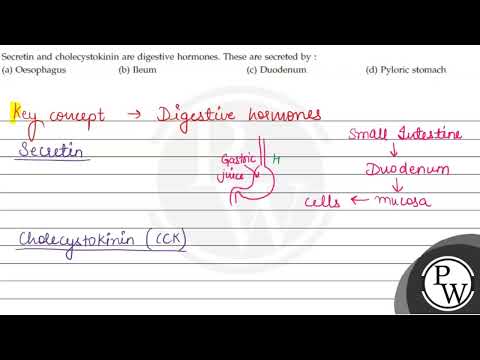 Secretin and cholecystokinin are digestive hormones. These are secreted by :
(a) Oesophagus (b) Ileum (c) Duodenum (d) Pyloric stomach
Key concept → Digestive hormones
Secretin
Gastric
juice
H
Small Intestine
↓
Duodenum
↓
cells ← mucosa
Cholecystokinin (CCK)
P
W